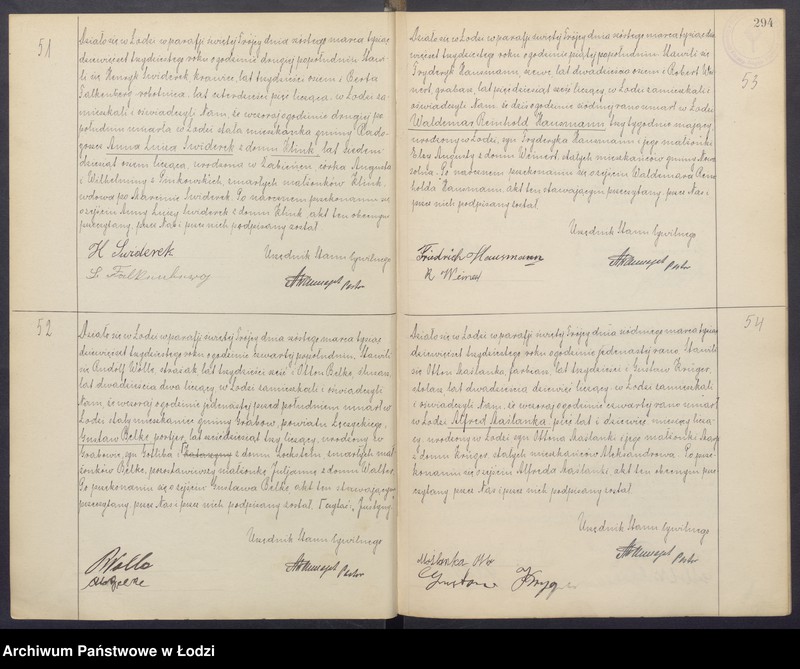 51
Działo się w Łodzi w parafji świętej Trójcy dnia szóstego marca tysiąc
dziewięćset trzydziestego roku o godzinie drugiej popołudniu. Stawi-
li się Henryk Swiderek krawiec, lat trzydzieści osiem i Berta
Falkenberg robotnica, lat czterdzieści pięć licząca, w Łodzi za-
mieszkali i oświadczyli Nam, że wczoraj o godzinie drugiej po
południu umarła w Łodzi stała mieszkanka gminy Rado-
goszcz Anna Luiza Swiderek z domu Klink, lat siedem-
dziesiąt osiem licząca, urodzona w córka Augusta
i Wilhelminy z zmarłych małżonków Klink,
wdowa po Swiderek. Po naocznem przekonaniu się
o zejściu Anny Luizy Swiderek z domu Klink, akt ten obecnym
przeczytany, przez Nas i przez nich podpisany został.
Urzędnik Stanu Cywilnego
H Swiderek
Falkenberg
Pastor
52
Działo się w Łodzi w parafji świętej Trójcy dnia szóstego marca tysiąc
dziewięćset trzydziestego roku o godzinie czwartej popołudniu. Stawili
się Rudolf Wolle, strażak lat trzydzieści sześć i Otton Belke
lat dwadzieścia dwa liczący, w Łodzi zamieszkali i oświadczyli
Nam, że wczoraj o godzinie jedenastej przed południem umarł w
Łodzi stały mieszkaniec gminy Grabów, powiatu Łęczyckiego,
Gustaw Belke, portjer, lat sześćdziesiąt trzy liczący, urodzony w
Grabowie, syn Gotliba i Katarzyny z domu zmarłych mał-
żonków Belke, pozostawiwszy małżonkę Juljannę z domu Walter.
Po przekonaniu się o zejściu Gustawa Belke, akt ten stawającym
przeczytany, przez Nas i przez nich podpisany został. Justyny
Urzędnik Stanu Cywilnego
R Wolle
Belke
Pastor
294
53
Działo się w Łodzi w parafji świętej Trójcy dnia szóstego marca tysiąc dzie-
więćset trzydziestego roku o godzinie piątej popołudniu. Stawili się
Fryderyk Hausmann, szewc, lat dwadzieścia osiem i Robert We-
inert, grabarz, lat pięćdziesiąt sześć liczący, w Łodzi zamieszkali i
oświadczyli Nam, że dziś o godzinie siódmej rano umarł w Łodzi
Waldemar Reinhold Hausmann trzy tygodnie mający,
urodzony w Łodzi, syn Fryderyka Hausmann i jego małżonki
Elzy Augusty z domu Weinert, stałych mieszkańców gminy Nowo-
solna. Po naocznem przekonaniu się o zejściu Waldemara Rein-
holda Hausmann, akt ten stawającym przeczytany, przez Nas i
przez nich podpisany został.
Urzędnik Stanu Cywilnego
Friedrich Hausmann
R Weinert
Pastor
54
Działo się w Łodzi w parafji świętej Trójcy dnia siódmego marca tysiąc
dziewięćset trzydziestego roku o godzinie jedenastej rano. Stawili
się Otton Maślanka, farbiarz, lat trzydzieści i Gustaw Krüger,
stolarz, lat dwadzieścia dziewięć liczący, w Łodzi zamieszkali
i oświadczyli Nam, że wczoraj o godzinie czwartej rano umarł
w Łodzi Alfred Maślanka pięć lat i dziewięć miesięcy liczą-
cy, urodzony w Łodzi, syn Ottona Maślanki i jego małżonki
z domu Krüger, stałych mieszkańców Aleksandrowa. Po prze-
konaniu się o zejściu Alfreda Maślanki akt ten obecnym prze-
czytany, przez Nas i przez nich podpisany został.
Urzędnik Stanu Cywilnego
Maślanka Otto
Gustaw Kryger
Pastor
Archiwum Państwowe w Łodzi